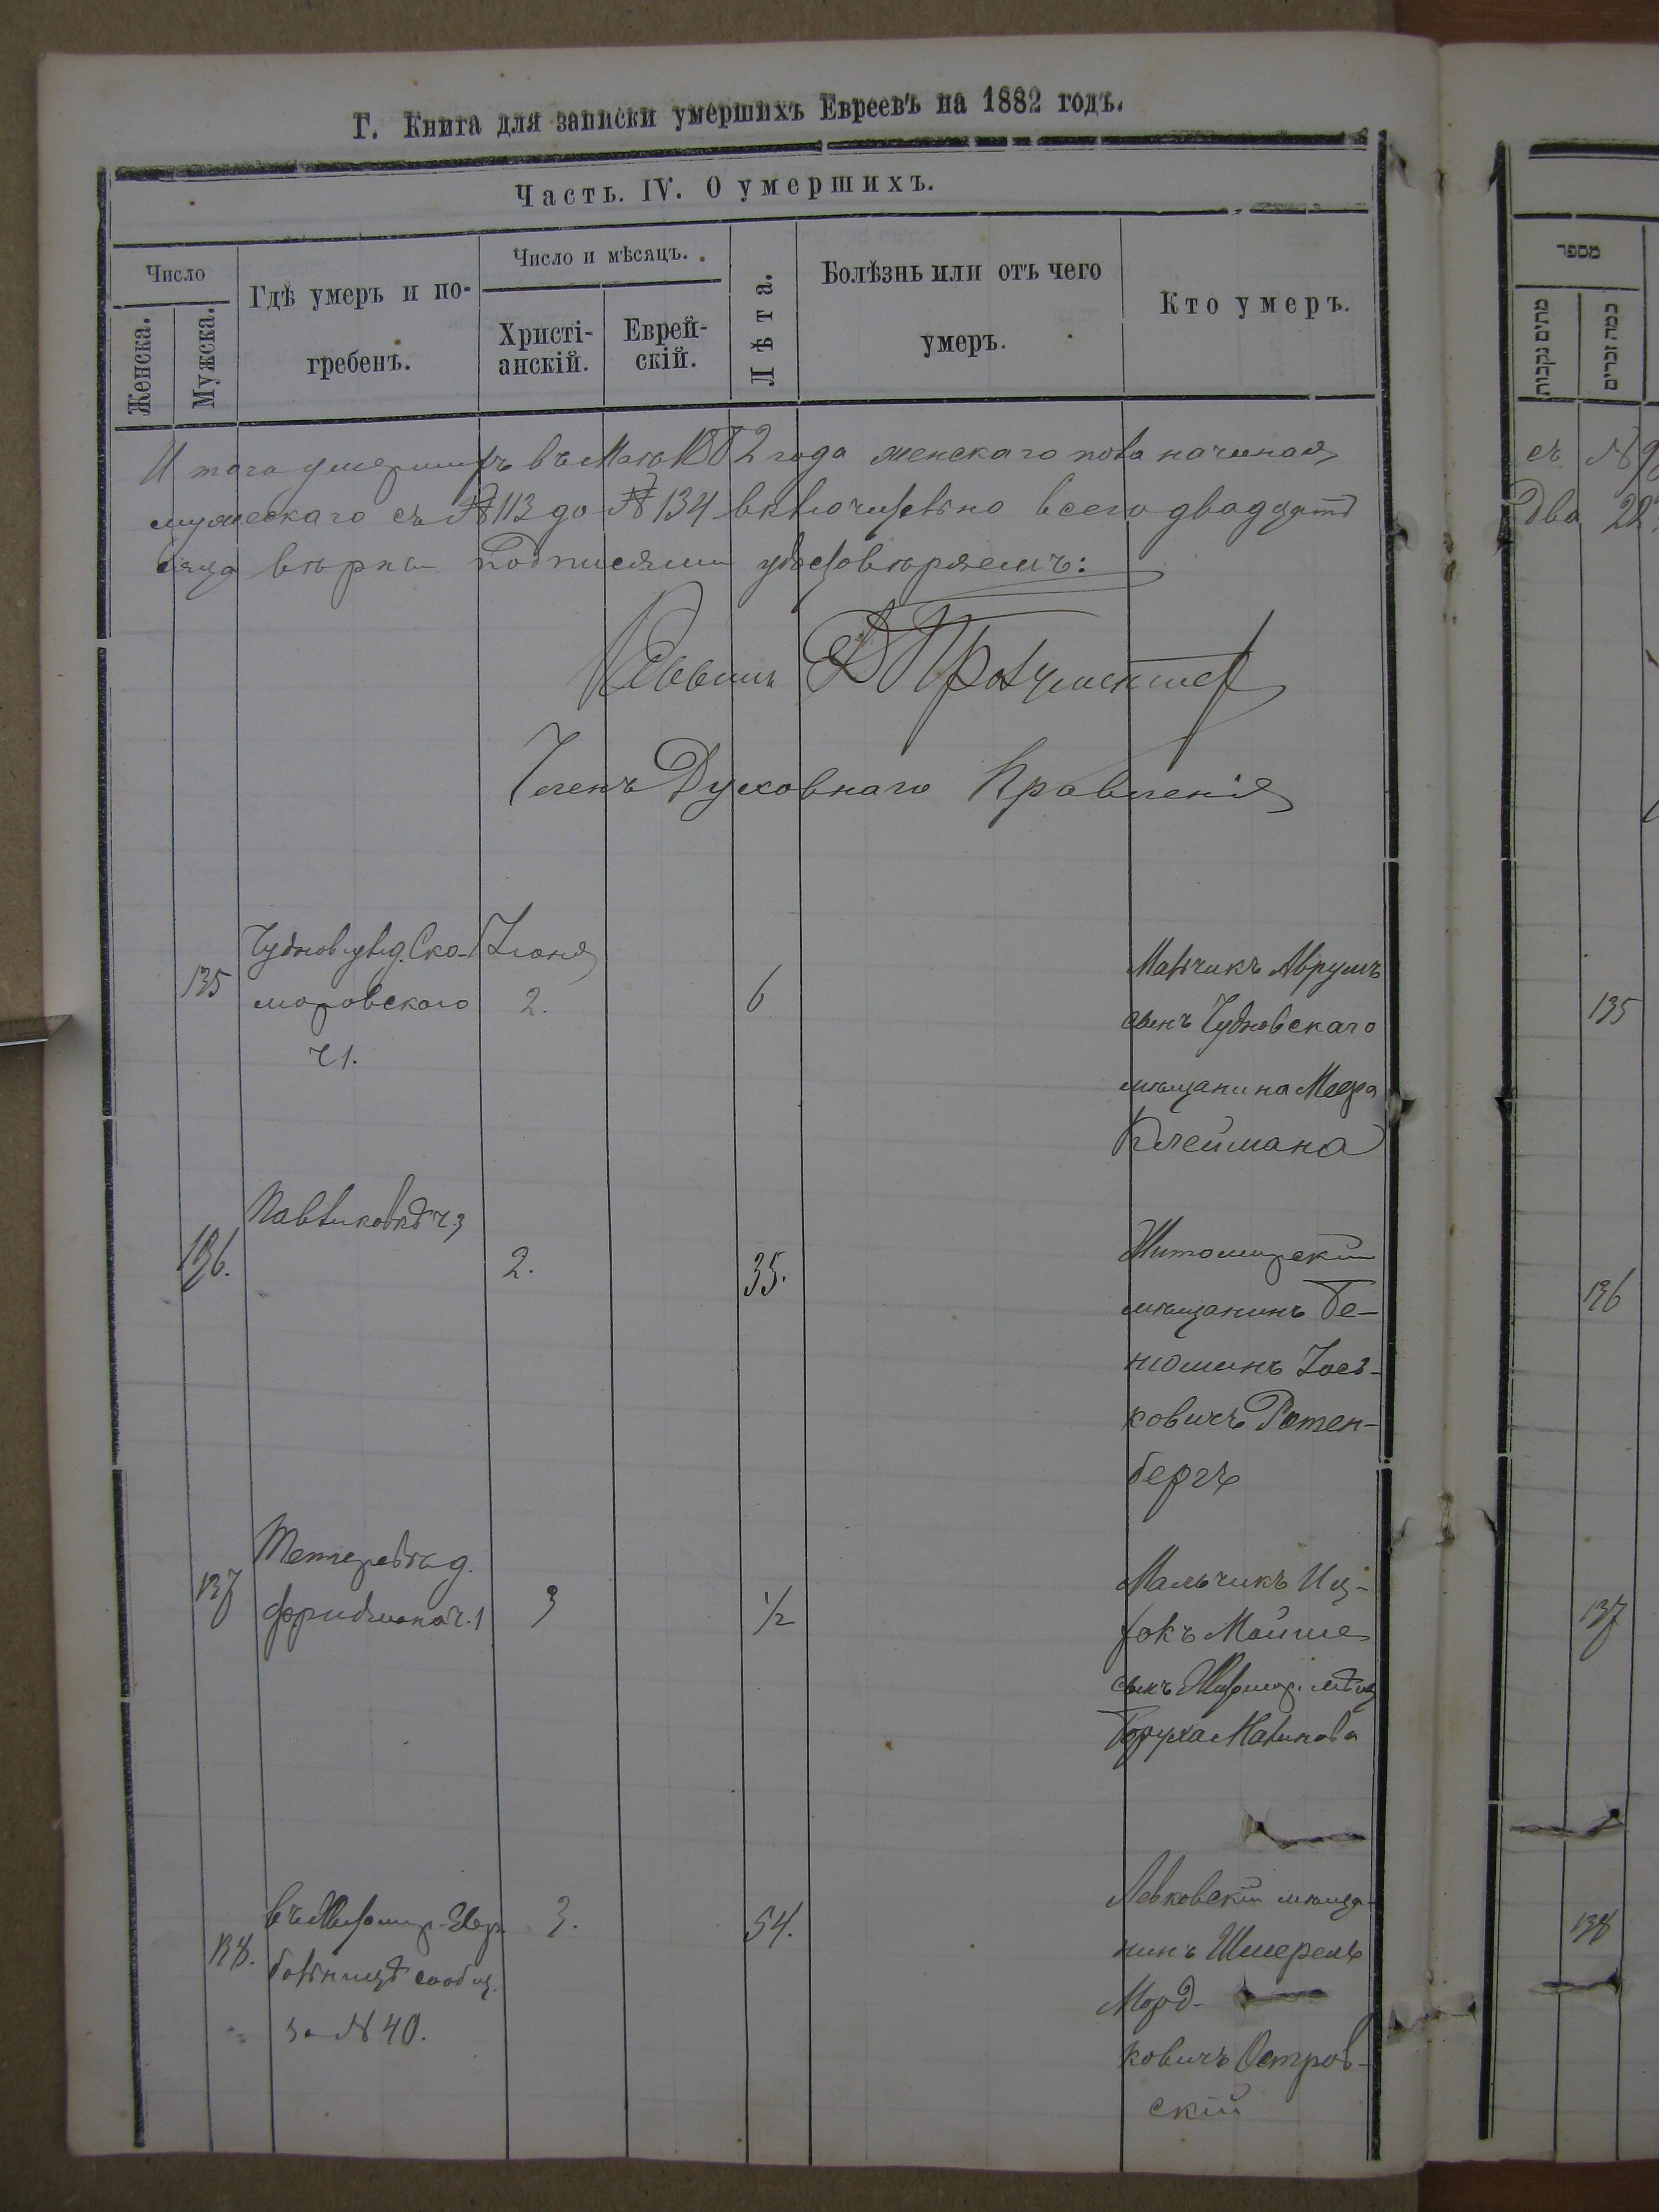 Г. Книга для записки умершихъ Евреевъ на 1882 годъ.
Часть. IV. О умершихъ.
Число
Женска.
Мужска.
Гдѣ умеръ и по-
гребенъ.
Число и мѣсяцъ.
Христі-
анскій.
Еврей-
скій.
Лѣта.
Болѣзнь или отъ чего
умеръ.
Кто умеръ.
Итого умершихъ въ Маѣ 1882 года женскаго пола начиная
мужескаго съ № 113 до № 134 включительно всего двадцать
вѣрна подписями удостовѣряемъ:
Раввинъ
Членъ Духовнаго Правленія
135
Чудновъ ул. д. Ско-
моровскаго
ч 1.
Іюня
2.
6
Мальчикъ Аврумъ
сынъ Чудновскаго
мѣщанина Меера
Клеймана
136.
Павликовкѣ ч. 3
2.
35.
Житомирскій
мѣщанинъ Бе-
нюминъ Іось-
ковичъ Ротен-
бергъ
137
Тетеревка д.
Фридмана ч. 1
3
1/2
Мальчикъ Иц-
хокъ Мойше
сынъ Житомир. мѣщ
Боруха Маликова
138.
въ Житомир. Евр.
больницѣ сообщ.
за № 40.
3.
54.
Левковскій мѣща-
нинъ Шмерель
Морд-
ковичъ Остров-
скій
מספר
מתים נקבות
כמה זכרים
съ № 9
два 22
135
136
137
138